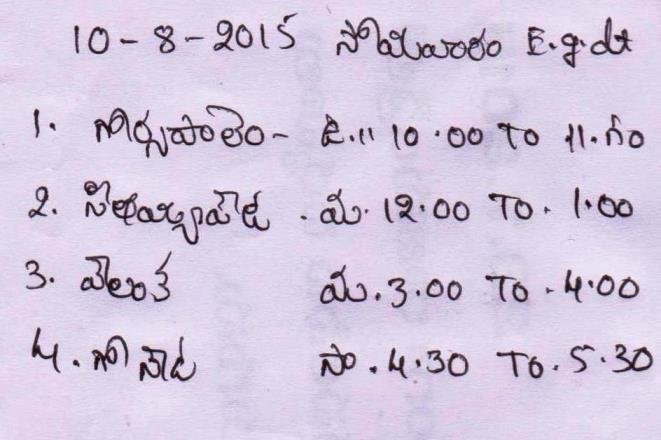 10-8-2015 సోమవారం E.g.dt
1. గొర్సపాలెం - ఉ.ll 10.00 TO 11.గం
2. సీతయ్యపేట . మ. 12.00 TO. 1.00
3. వెలంక మ. 3.00 TO. 4.00
4. గోనాడ సా. 4.30 TO. 5.30